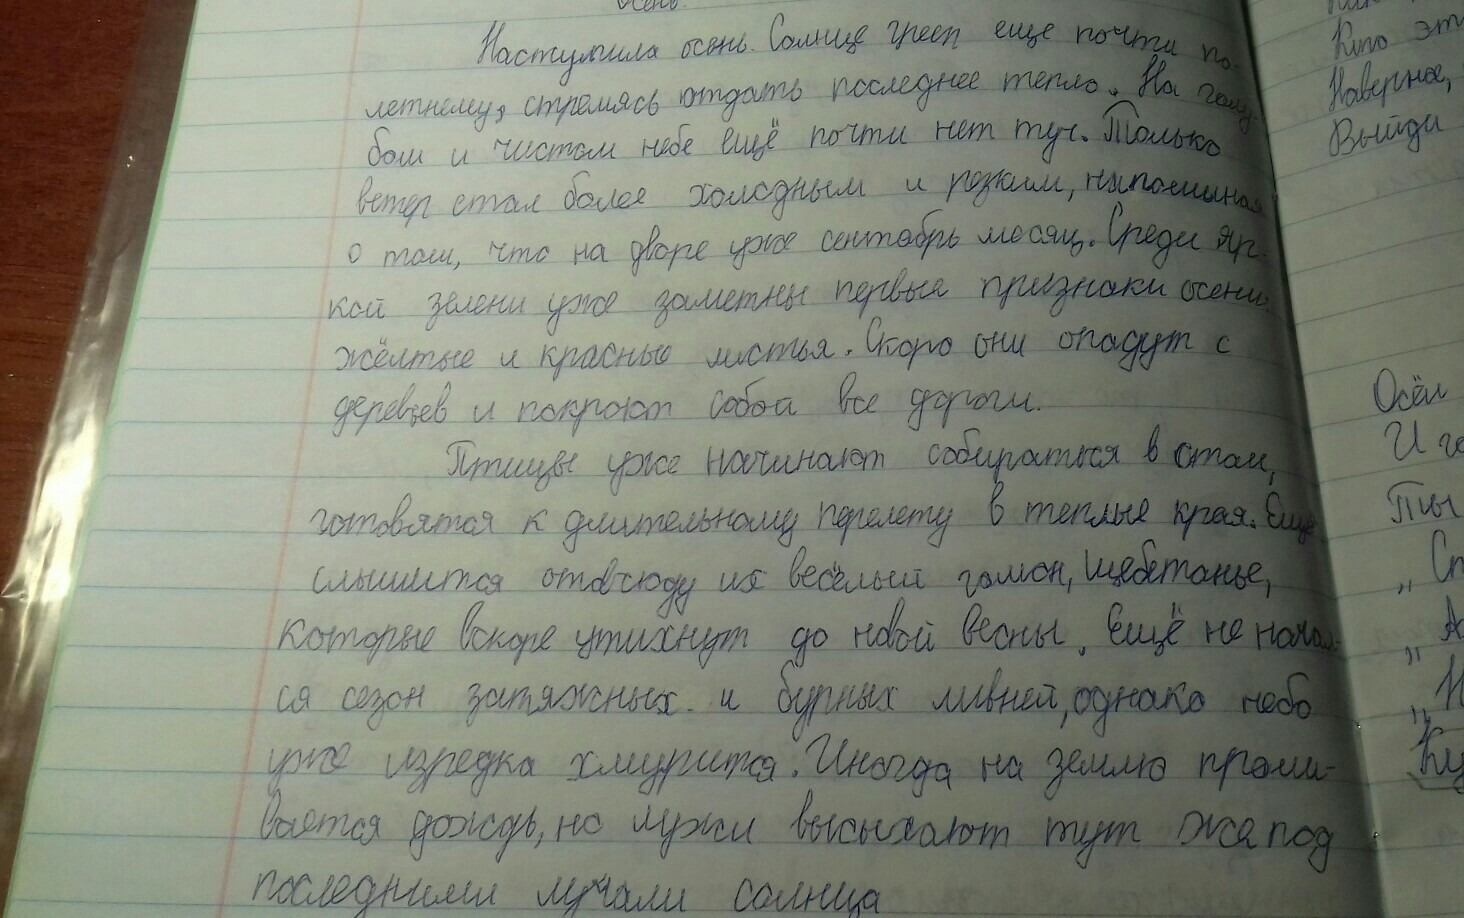 Осень.
Наступила осень. Солнце греет еще почти по-
летнему, стремясь отдать последнее тепло. На голу-
бом и чистом небе ещё почти нет туч. Только
ветер стал более холодным и резким, напоминая
о том, что на дворе уже сентябрь месяц. Среди яр-
кой зелени уже заметны первые признаки осени:
жёлтые и красные листья. Скоро они опадут с
деревьев и покроют собой все дороги.
Птицы уже начинают собираться в стаи,
готовятся к длительному перелету в теплые края. Ещё
слышится отовсюду их весёлый гомон, щебетанье,
которые вскоре утихнут до новой весны. Ещё не начал-
ся сезон затяжных и бурных ливней, однако небо
уже изредка хмурится. Иногда на землю проли-
вается дождь, но лужи высыхают тут же под
последними лучами солнца
Кто эт
Наверное,
Выйди
Осёл
И го
Ты
„Сп
„А
„Н
Ку